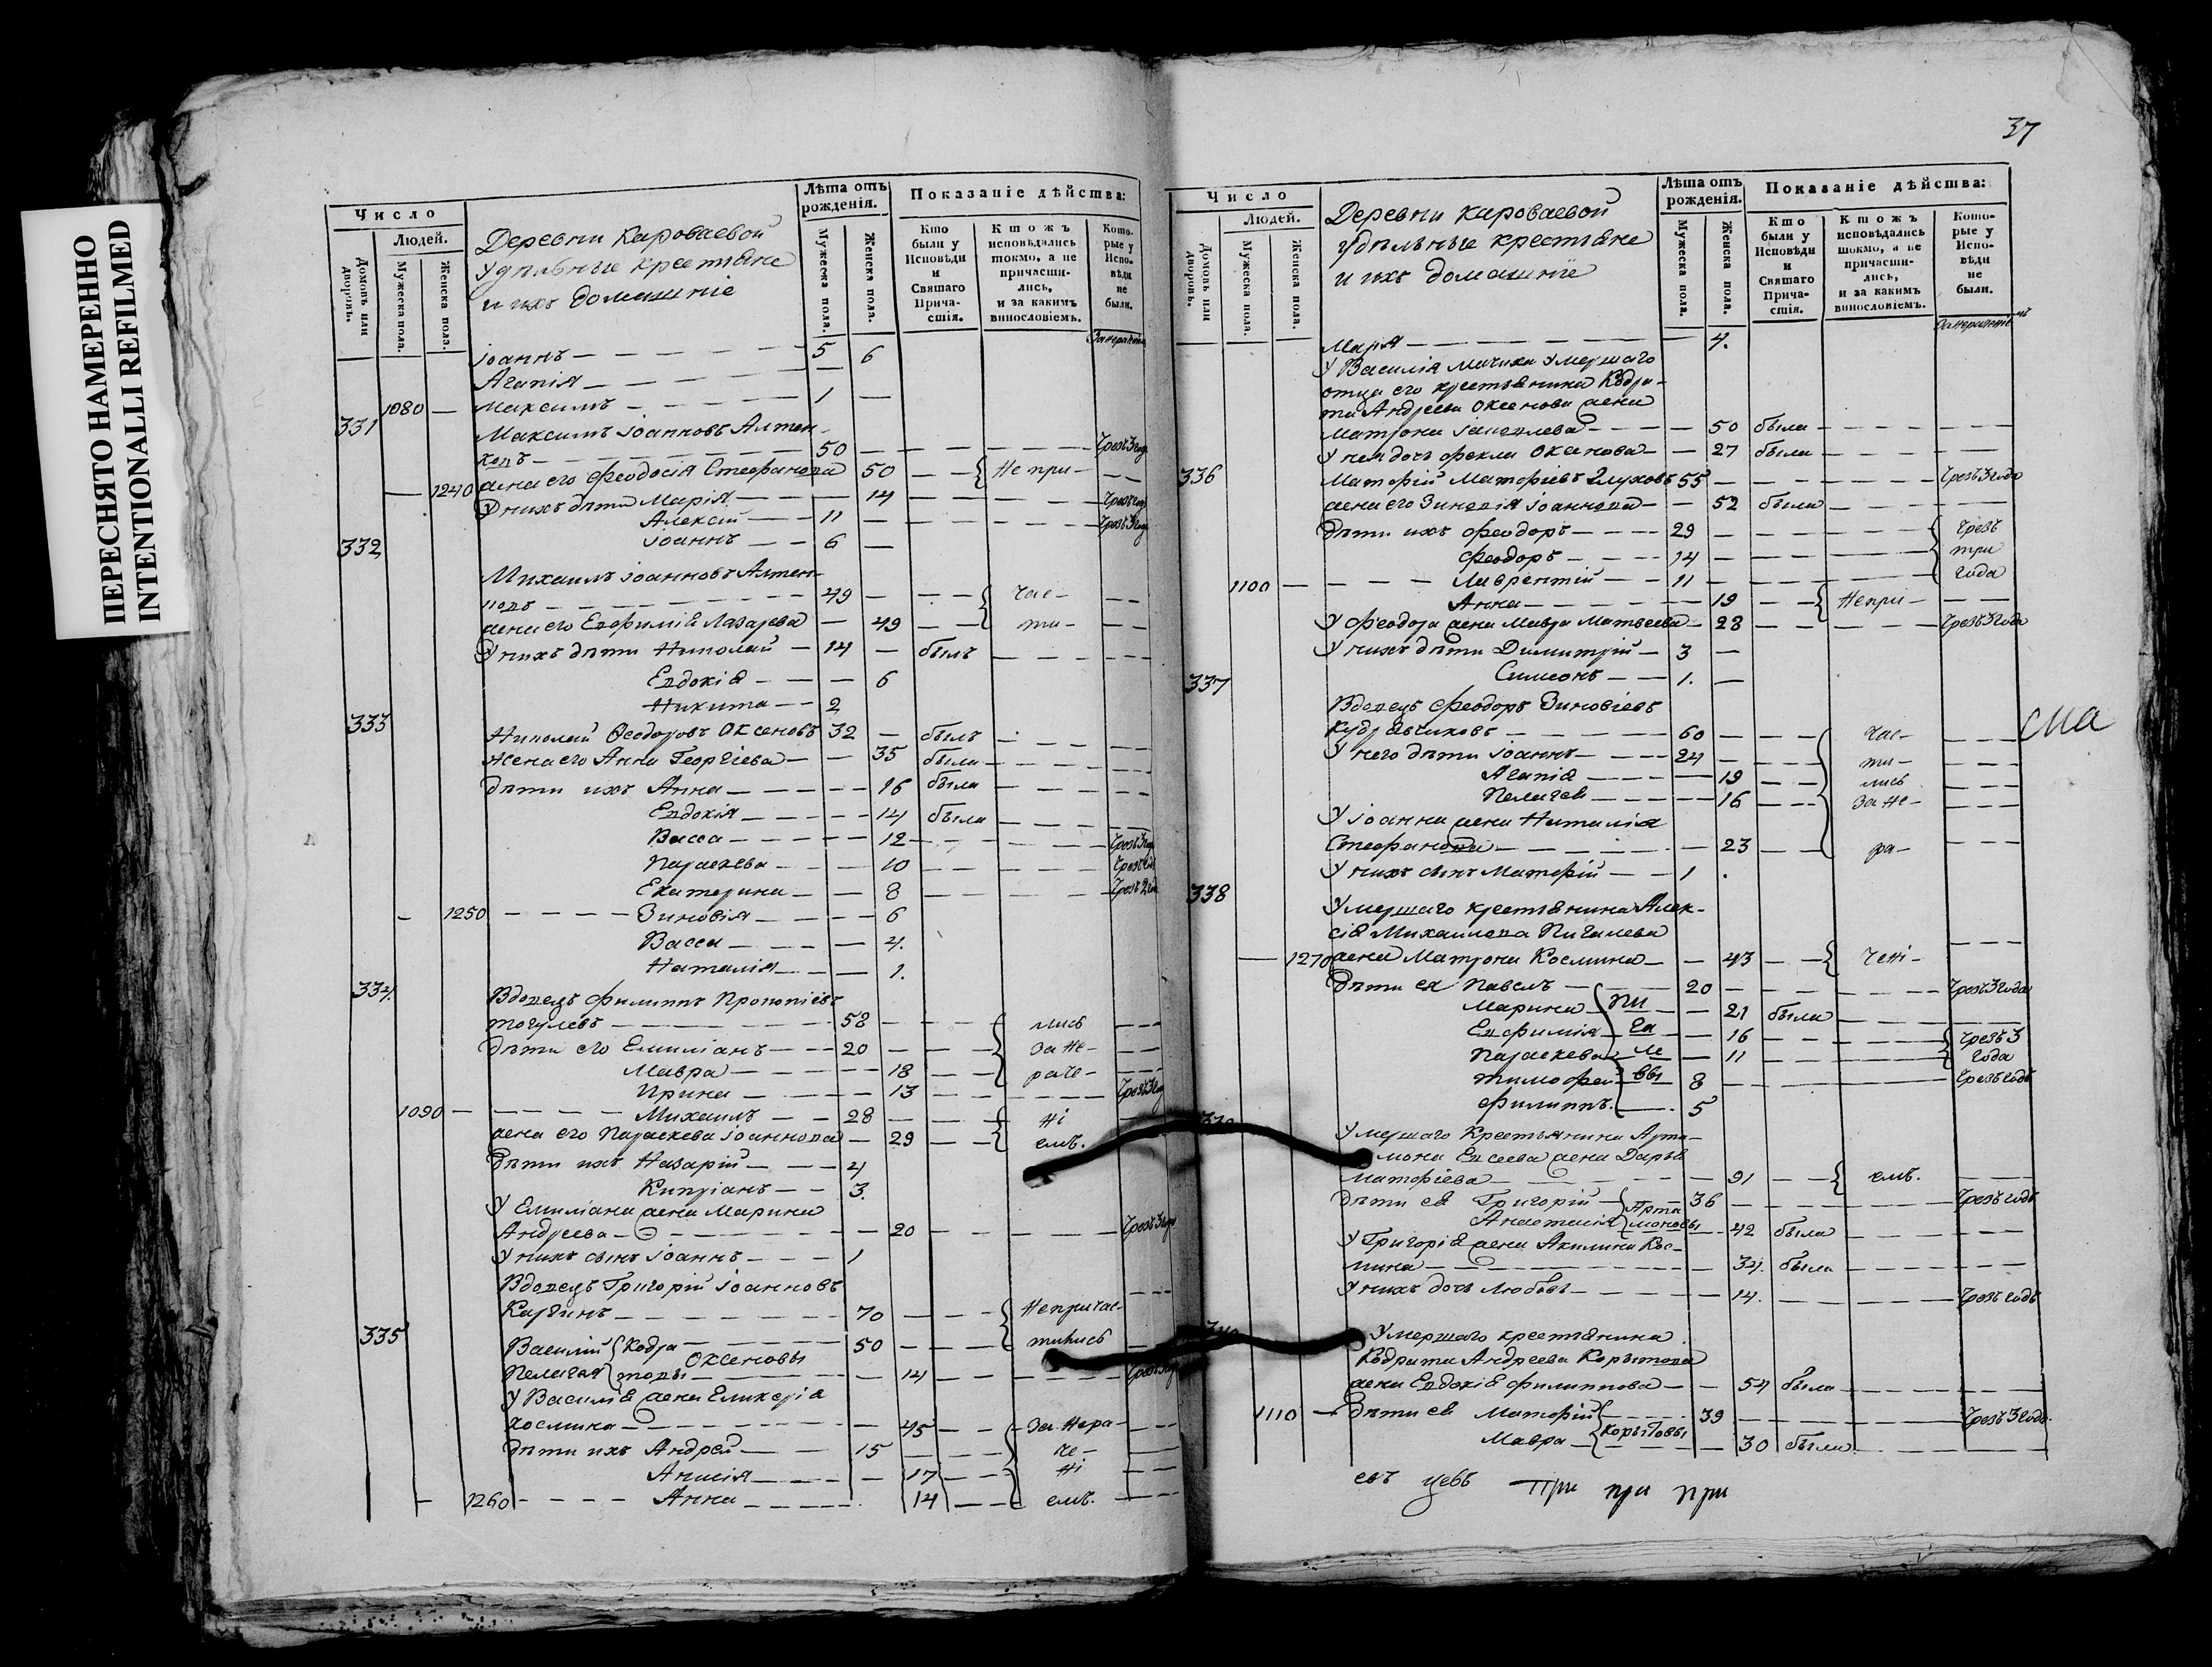 ПЕРЕСНЯТО НАМЕРЕННО
INTENTIONALLI REFILMED
Число
Людей.
Домовъ или дворовъ.
Мужеска пола.
Женска пола.
Деревни Короваевой
удѣльные крестьяне
и ихъ домашніе
Лѣта отъ рожденія.
Мужеска пола.
Женска пола.
Показаніе дѣйства:
Кто были у Исповѣди и Святаго Причастія.
Ктожъ исповѣдались токмо, а не причастились, и за какимъ винословіемъ.
Которые у Исповѣди не были.
Іоаннъ 5
Агапія 6
1080 Максимъ 1
331 Максимъ Іоанновъ
50 Чрезъ 3 года
1240 жена его Феодосія Стефанова 50 Не при-
У нихъ дѣти Марія 14
Алексій 11
Іоаннъ 6
332 Михаилъ Іоанновъ
49 час-
жена его Евфимія Лазарева 49 ти-
У нихъ дѣти Николай 14 былъ
Евдокія 6
Никита 2
333 Николай Феодоровъ Оксеновъ 32 былъ
Жена его Анна Георгіева 35 была
Дѣти ихъ Анна 16 была
Евдокія 14 была
Васса 12
Параскева 10
Екатерина 8
1250 Зиновія 6
Васса 4.
Наталія 1.
334. Вдовецъ Филиппъ Прокопіевъ
58 лись
Дѣти его Емиліанъ 20 за не-
Мавра 18 раче-
Ирина 13
1090 Михаилъ 28 ні
жена его Параскева Іоаннова 29 емъ.
Дѣти ихъ Назарій 4
Кипріанъ 3.
У Емиліана жена Марина
Андреева 20
У нихъ сынъ Іоаннъ 1
Вдовецъ Григорій Іоанновъ
70 Непричас-
335 Василій Кодра 50 тились
Пелагея товы Оксеновы 14
У Василія жена Гликерія
Космина 45 За нера-
Дѣти ихъ Андрей 15 че-
Анисія 17 ні
1260 Анна 14 емъ.
37
Число
Людей.
Домовъ или дворовъ.
Мужеска пола.
Женска пола.
Деревни Короваевой
удѣльные крестьяне
и ихъ домашніе
Лѣта отъ рожденія.
Мужеска пола.
Женска пола.
Показаніе дѣйства:
Кто были у Исповѣди и Святаго Причастія.
Ктожъ исповѣдались токмо, а не причастились, и за какимъ винословіемъ.
Которые у Исповѣди не были.
Марія 4.
У Василія мачиха умершаго
отца его крестьянина Кодра-
та Андреева Оксенова жена
Матрона 50 была
У нея дочь Фекла Оксенова 27 была
336 Матфій Матфіевъ Глуховъ 55 Чрезъ 3 года
жена его Зиновія Іоаннова 52 была
Дѣти ихъ Феодоръ 29 Чрезъ
Феодоръ 14 три
1100 Лаврентій 11 года
Анна 19 Непри-
У Феодора жена Мавра Матвеева 28 Чрезъ 3 года
У нихъ дѣти Димитрій 3
Симеонъ 1.
337 Вдовецъ Феодоръ Зиновіевъ
60 час-
У него дѣти Іоаннъ 24 ти-
Агапія 19 лись
Пелагея 16 За не-
У Іоанна жена Наталія
Стефанова 23 ра-
У нихъ сынъ Матфій 1
сма
338 Умершаго крестьянина Алек-
сія Михаилова Пигалева
1270 жена Матрона Космина 43 чені-
Дѣти ея Павелъ 20 Чрезъ 3 года
Марина Пи 21 была
Евфимія га 16 Чрезъ 3
Параскева ле 11 года
Тимофей вы 8 Чрезъ годъ
Филиппъ 5
Умершаго Крестьянина Арта-
мона Евсеева жена Дарья
Матфіева 91 емъ.
Дѣти ея Григорій Арта 36 Чрезъ годъ
Анастасія моновы 42 была
У Григорія жена Акилина Кос-
мина 34. была
У нихъ дочь Любовь 14. Чрезъ годъ
Умершаго крестьянина
Кодрата Андреева Корытова
жена Евдокія Филиппова 54 была
1110 Дѣти ея Матфій 39 Чрезъ 3 года
Мавра Корытовы 30 была
При при при